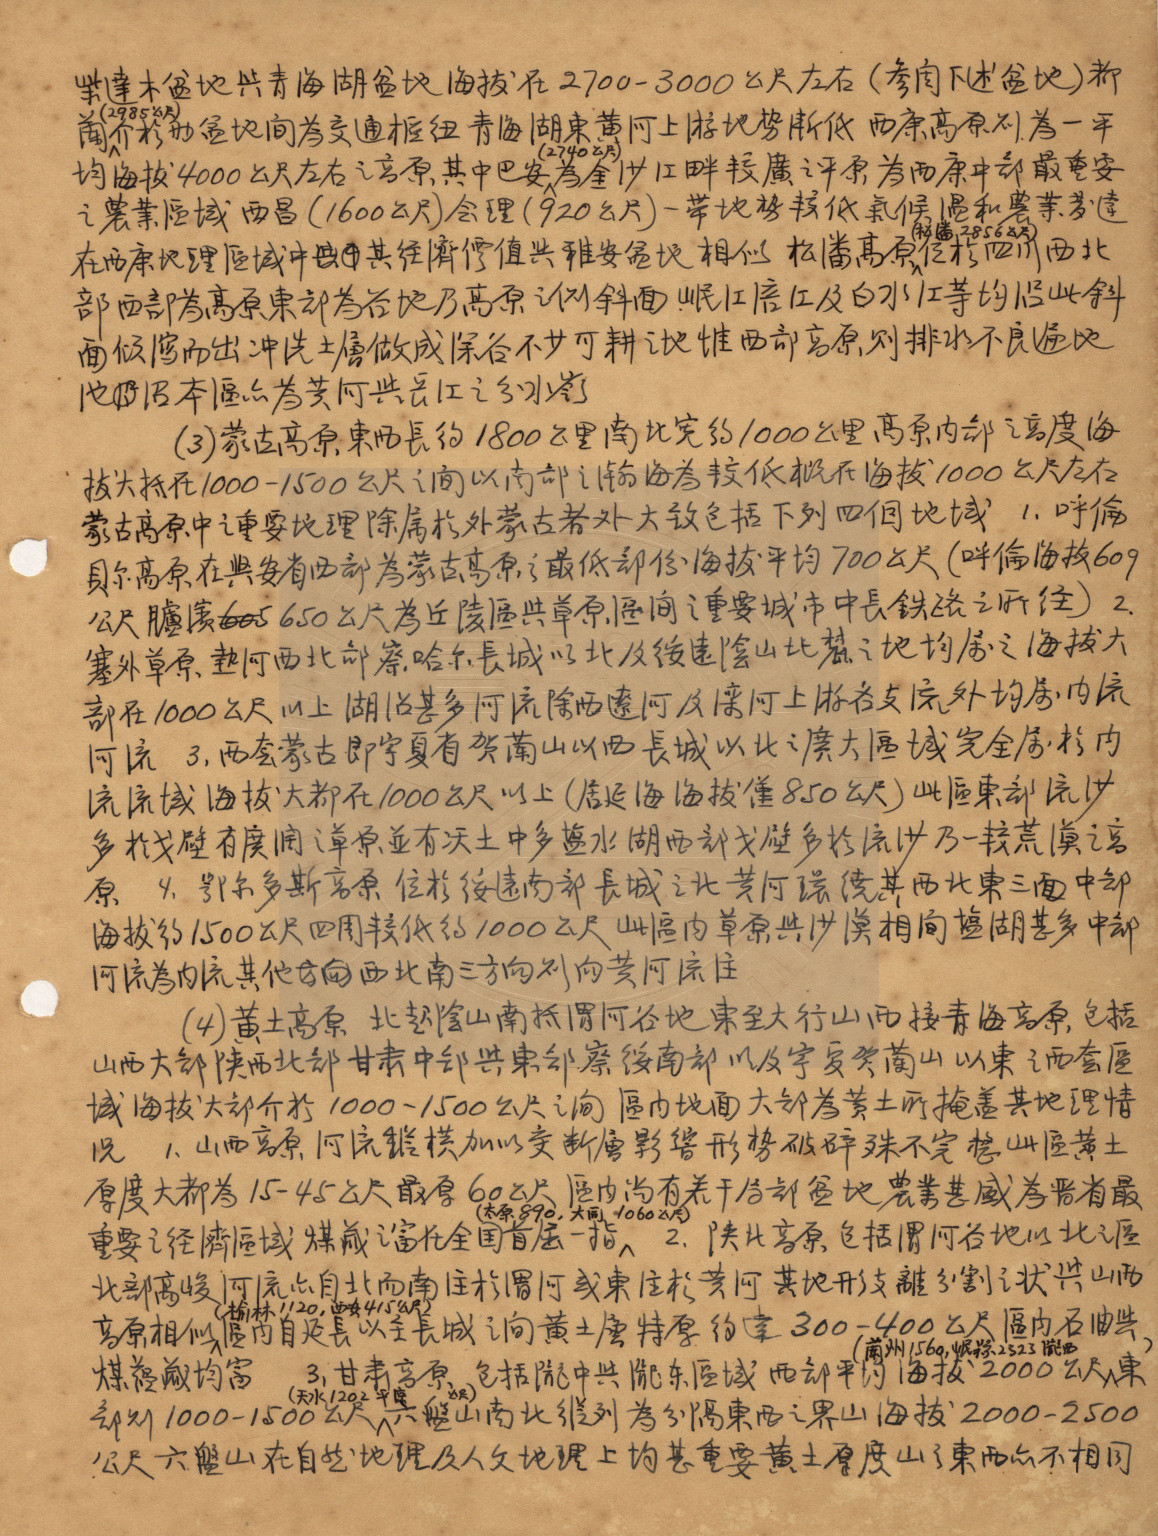 柴達木盆地與青海湖盆地海拔在2700-3000公尺左右(參閱下述盆地)都
(2985公尺)
蘭介於兩盆地間為交通樞紐青海湖東黃河上游地勢漸低 西康高原則為一平
(2740公尺)
均海拔4000公尺左右之高原其中巴安為金沙江畔較廣之平原為西康中部最重要
之農業區域 西昌(1600公尺)會理(920公尺)一帶地勢較低氣候溫和農業發達
(松潘2856公尺)
在西康地理區域中其經濟價值與雅安盆地相似 松潘高原位於四川西北
部西部為高原東部為谷地乃高原之傾斜面 岷江涪江及白水江等均沿此斜
面傾瀉而出冲洗土層做成深谷不少可耕之地惟西部高原則排水不良遍地
池沼本區亦為黃河與長江之分水嶺
(3)蒙古高原 東西長約1800公里南北寬約1000公里高原內部之高度海
拔大抵在1000-1500公尺之間以南部之瀚海為較低概在海拔1000公尺左右
蒙古高原中之重要地理除属於外蒙古者外大致包括下列四個地域 1. 呼倫
貝尔高原在興安省西部為蒙古高原之最低部份海拔平均700公尺(呼倫海拔609
公尺臚濱605 650公尺為丘陵區與草原區間之重要城市中長鉄路之所経) 2.
塞外草原 熱河西北部察哈尔長城以北及綏遠陰山北麓之地均属之 海拔大
部在1000公尺以上 湖沼甚多河流除西遼河及滦河上游各支流外均属內流
河流 3. 西套蒙古即宁夏省贺蘭山以西長城以北之廣大區域完全属於內
流流域 海拔大都在1000公尺以上(居延海海拔僅850公尺)此區東部流沙
多於戈壁有廣闊之草原並有沃土中多盐水湖西部戈壁多於流沙乃一較荒漠之高
原 4. 鄂尔多斯高原 位於綏遠南部長城之北黃河環繞其西北東三面中部
海拔約1500公尺四周較低約1000公尺 此區內草原與沙漠相間盐湖甚多中部
河流為內流其他方向西北南三方向則向黃河流注
(4)黃土高原 北起陰山南抵渭河谷地東至大行山西接青海高原 包括
山西大部陝西北部甘肅中部與東部察綏南部以及宁夏贺蘭山以東之西套區
域 海拔大部介於1000-1500公尺之間 區內地面大部為黃土所掩盖其地理情
況 1. 山西高原 河流縱橫加以变断層影響形勢破碎殊不完整此區黃土
厚度大都為15-45公尺最厚60公尺 區內尚有若干局部盆地農業甚盛為晋省最
(太原890, 大同1060公尺)
重要之経濟區域 煤藏之富在全国首屈一指 2. 陝北高原 包括渭河谷地以北之區
北部高峻河流亦自北而南注於渭河或東注於黃河 其地形支離分割之狀與山西
(榆林1120, 西安415公尺)
高原相似 區内自延長以至長城之间黃土層特厚約達300-400公尺 區内石油與
(蘭州1560, 岷縣2323 隴西
煤蕴藏均富 3. 甘肅高原 包括隴中與隴东區域 西部平均海拔2000公尺東
(天水1202 平凉 公尺)
部則1000-1500公尺 六盤山南北縱列為分隔東西之界山海拔2000-2500
公尺 六盤山在自然地理及人文地理上均甚重要黃土厚度山之東西亦不相同